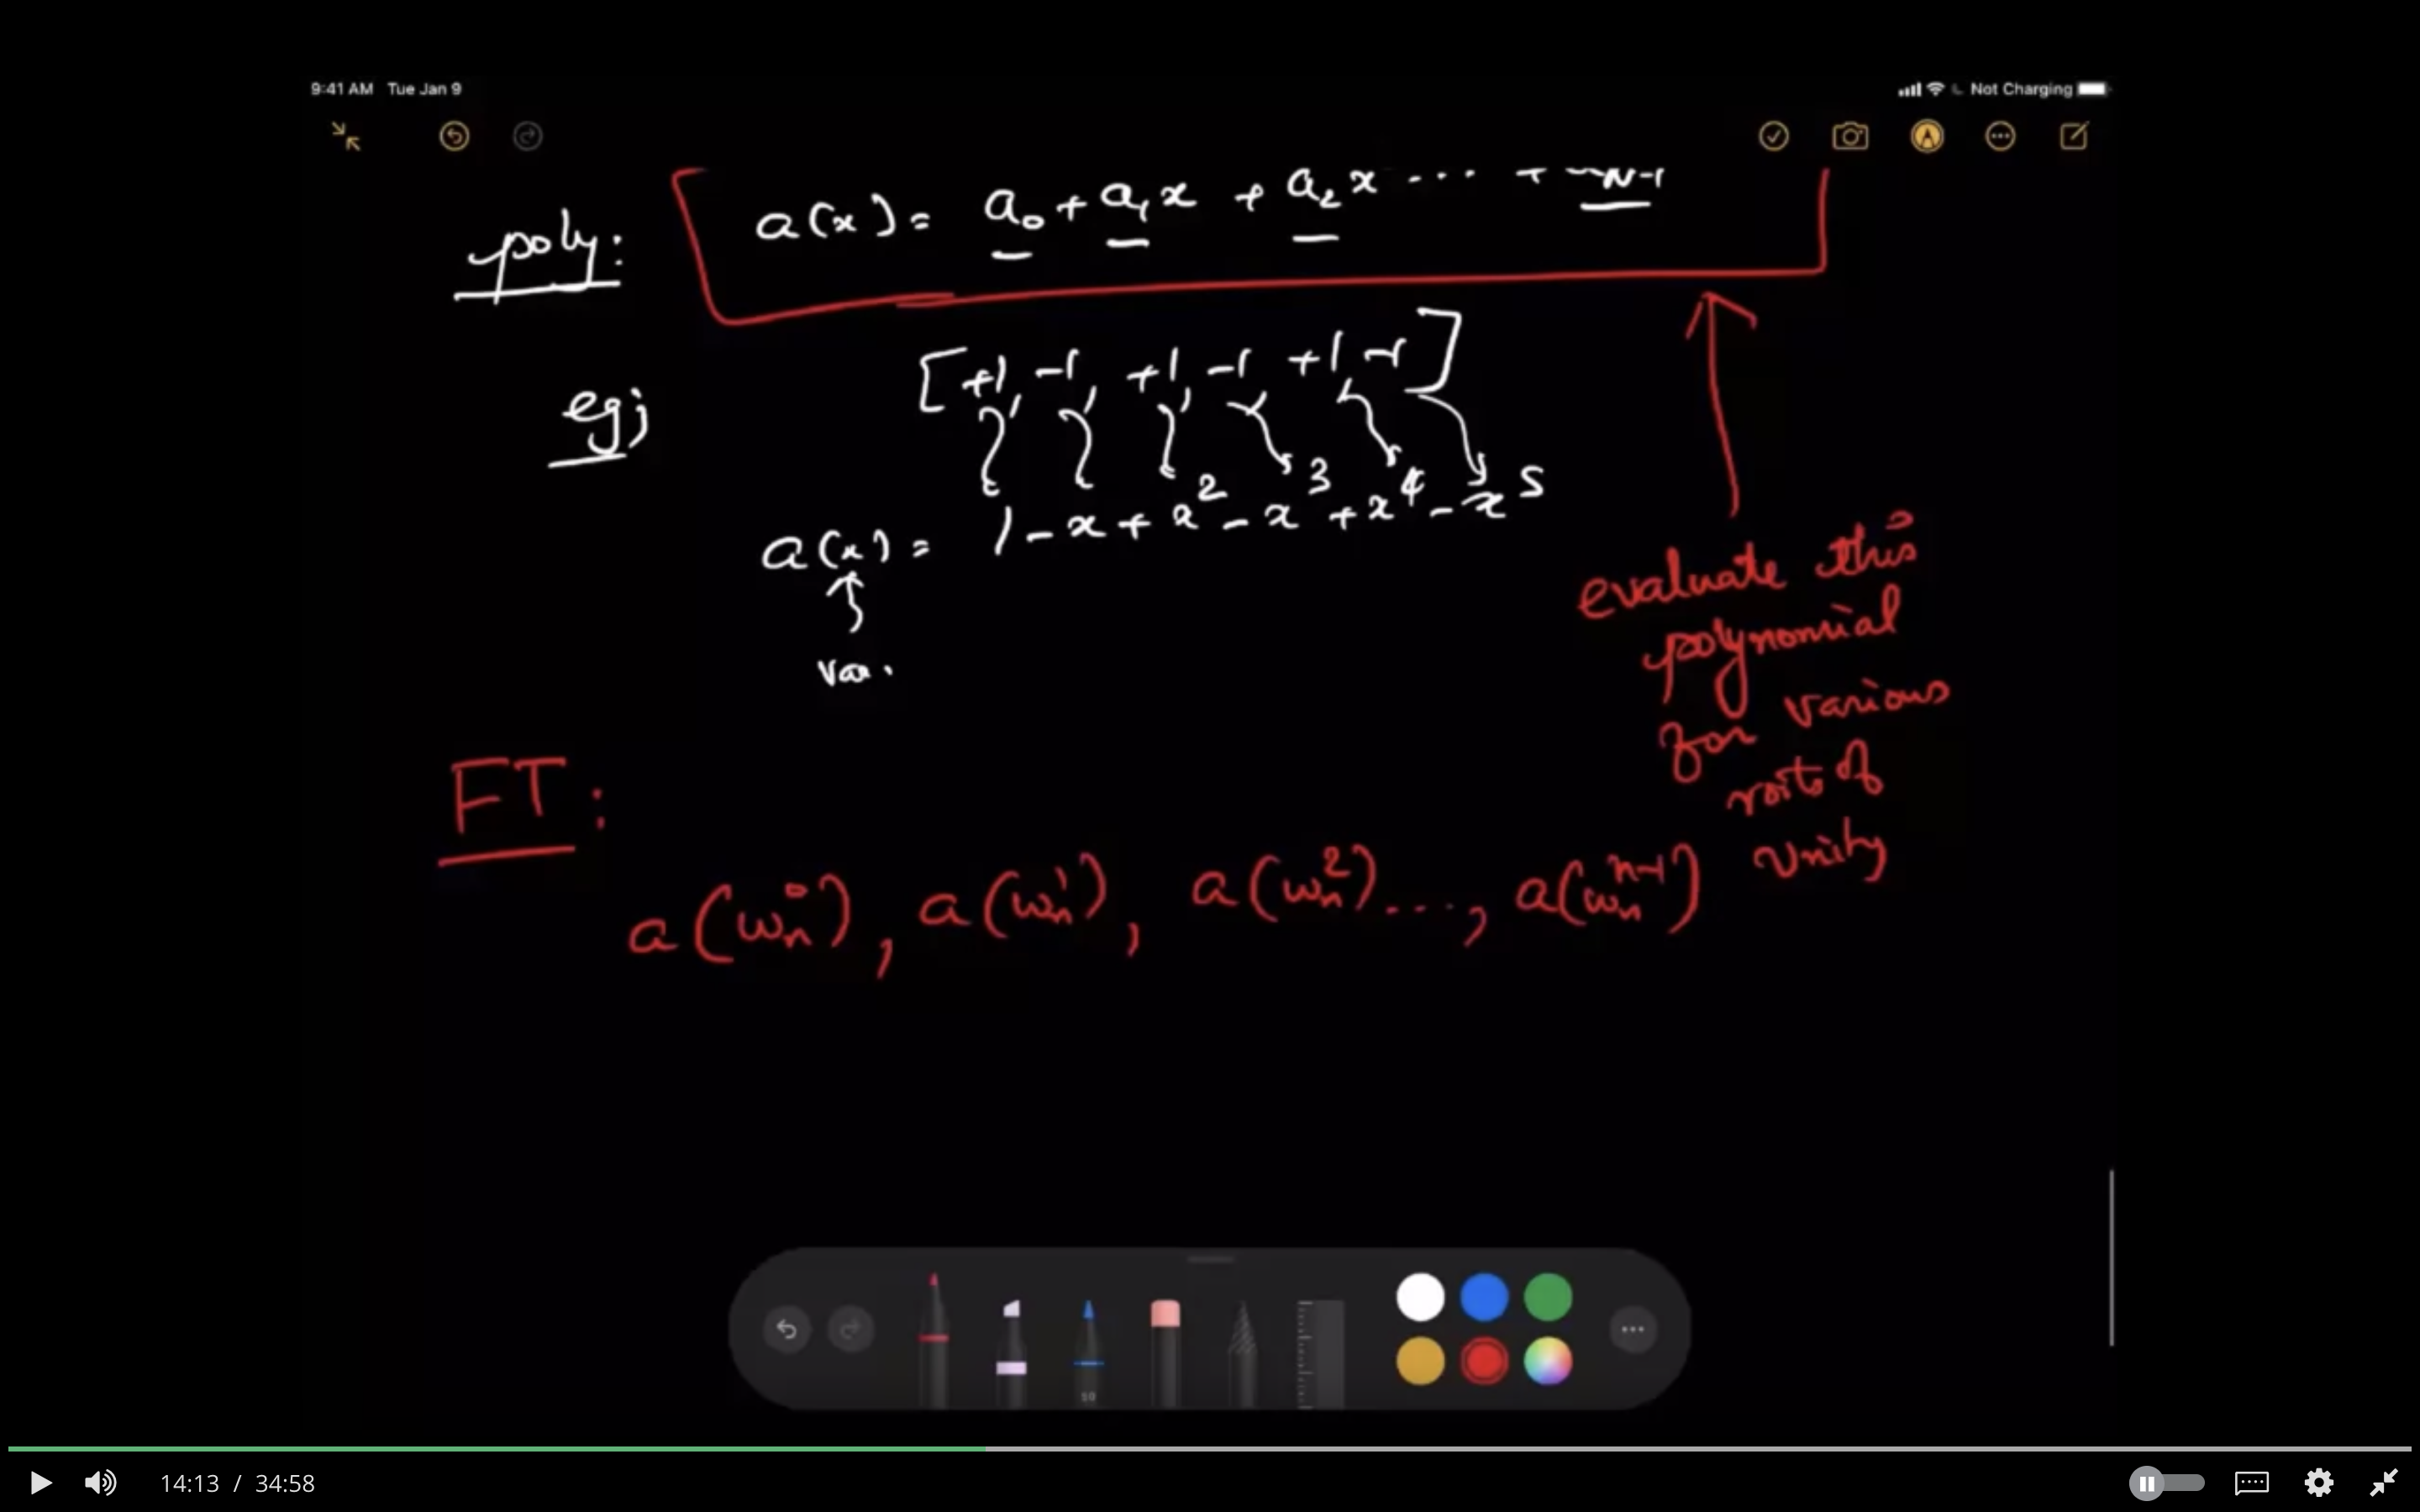 9:41 AM Tue Jan 9
Not Charging
poly: a(x) = a₀ + a₁x + a₂x ... + N-1
eg; [+1, -1, +1, -1 +1, -1]
a(x) = 1 - x + x² - x³ + x⁴ - x⁵
var.
evaluate this
polynomial
for various
roots of
unity
FT:
a(ωₙ⁰), a(ωₙ¹), a(ωₙ²)..., a(ωₙⁿ⁻¹)
50
14:13 / 34:58